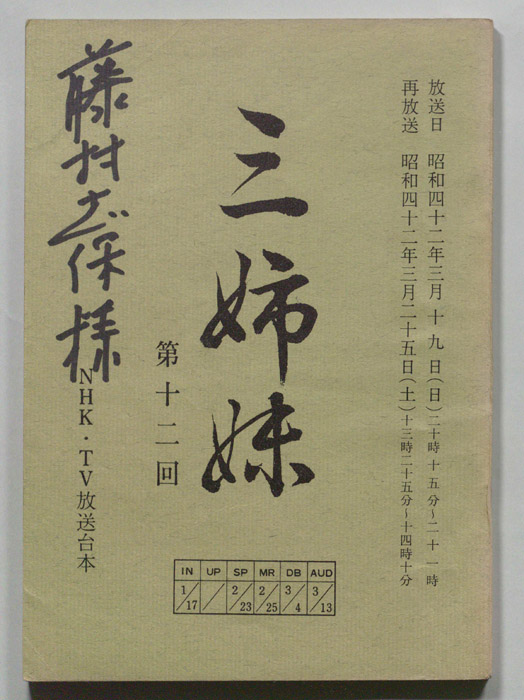 放送日 昭和四十二年三月十九日(日)二十時十五分~二十一時
再放送 昭和四十二年三月二十五日(土)十三時二十五分~十四時十分
三姉妹
第十二回
藤村志保様
NHK・TV放送台本
IN UP SP MR DB AUD
1/17 / 2/23 2/25 3/4 3/13